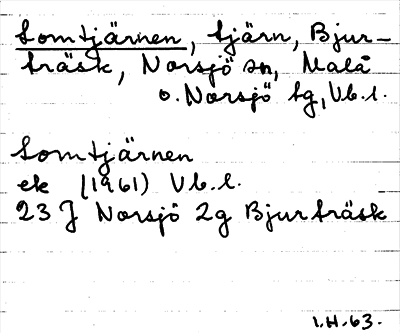 Lomtjärnen, tjärn, Bjur-
träsk, Norsjö sn, Malå
o. Norsjö tg, Vb. l.
Lomtjärnen
ek (1961) Vb. l.
23 J Norsjö 2g Bjurträsk
I.H. 63.